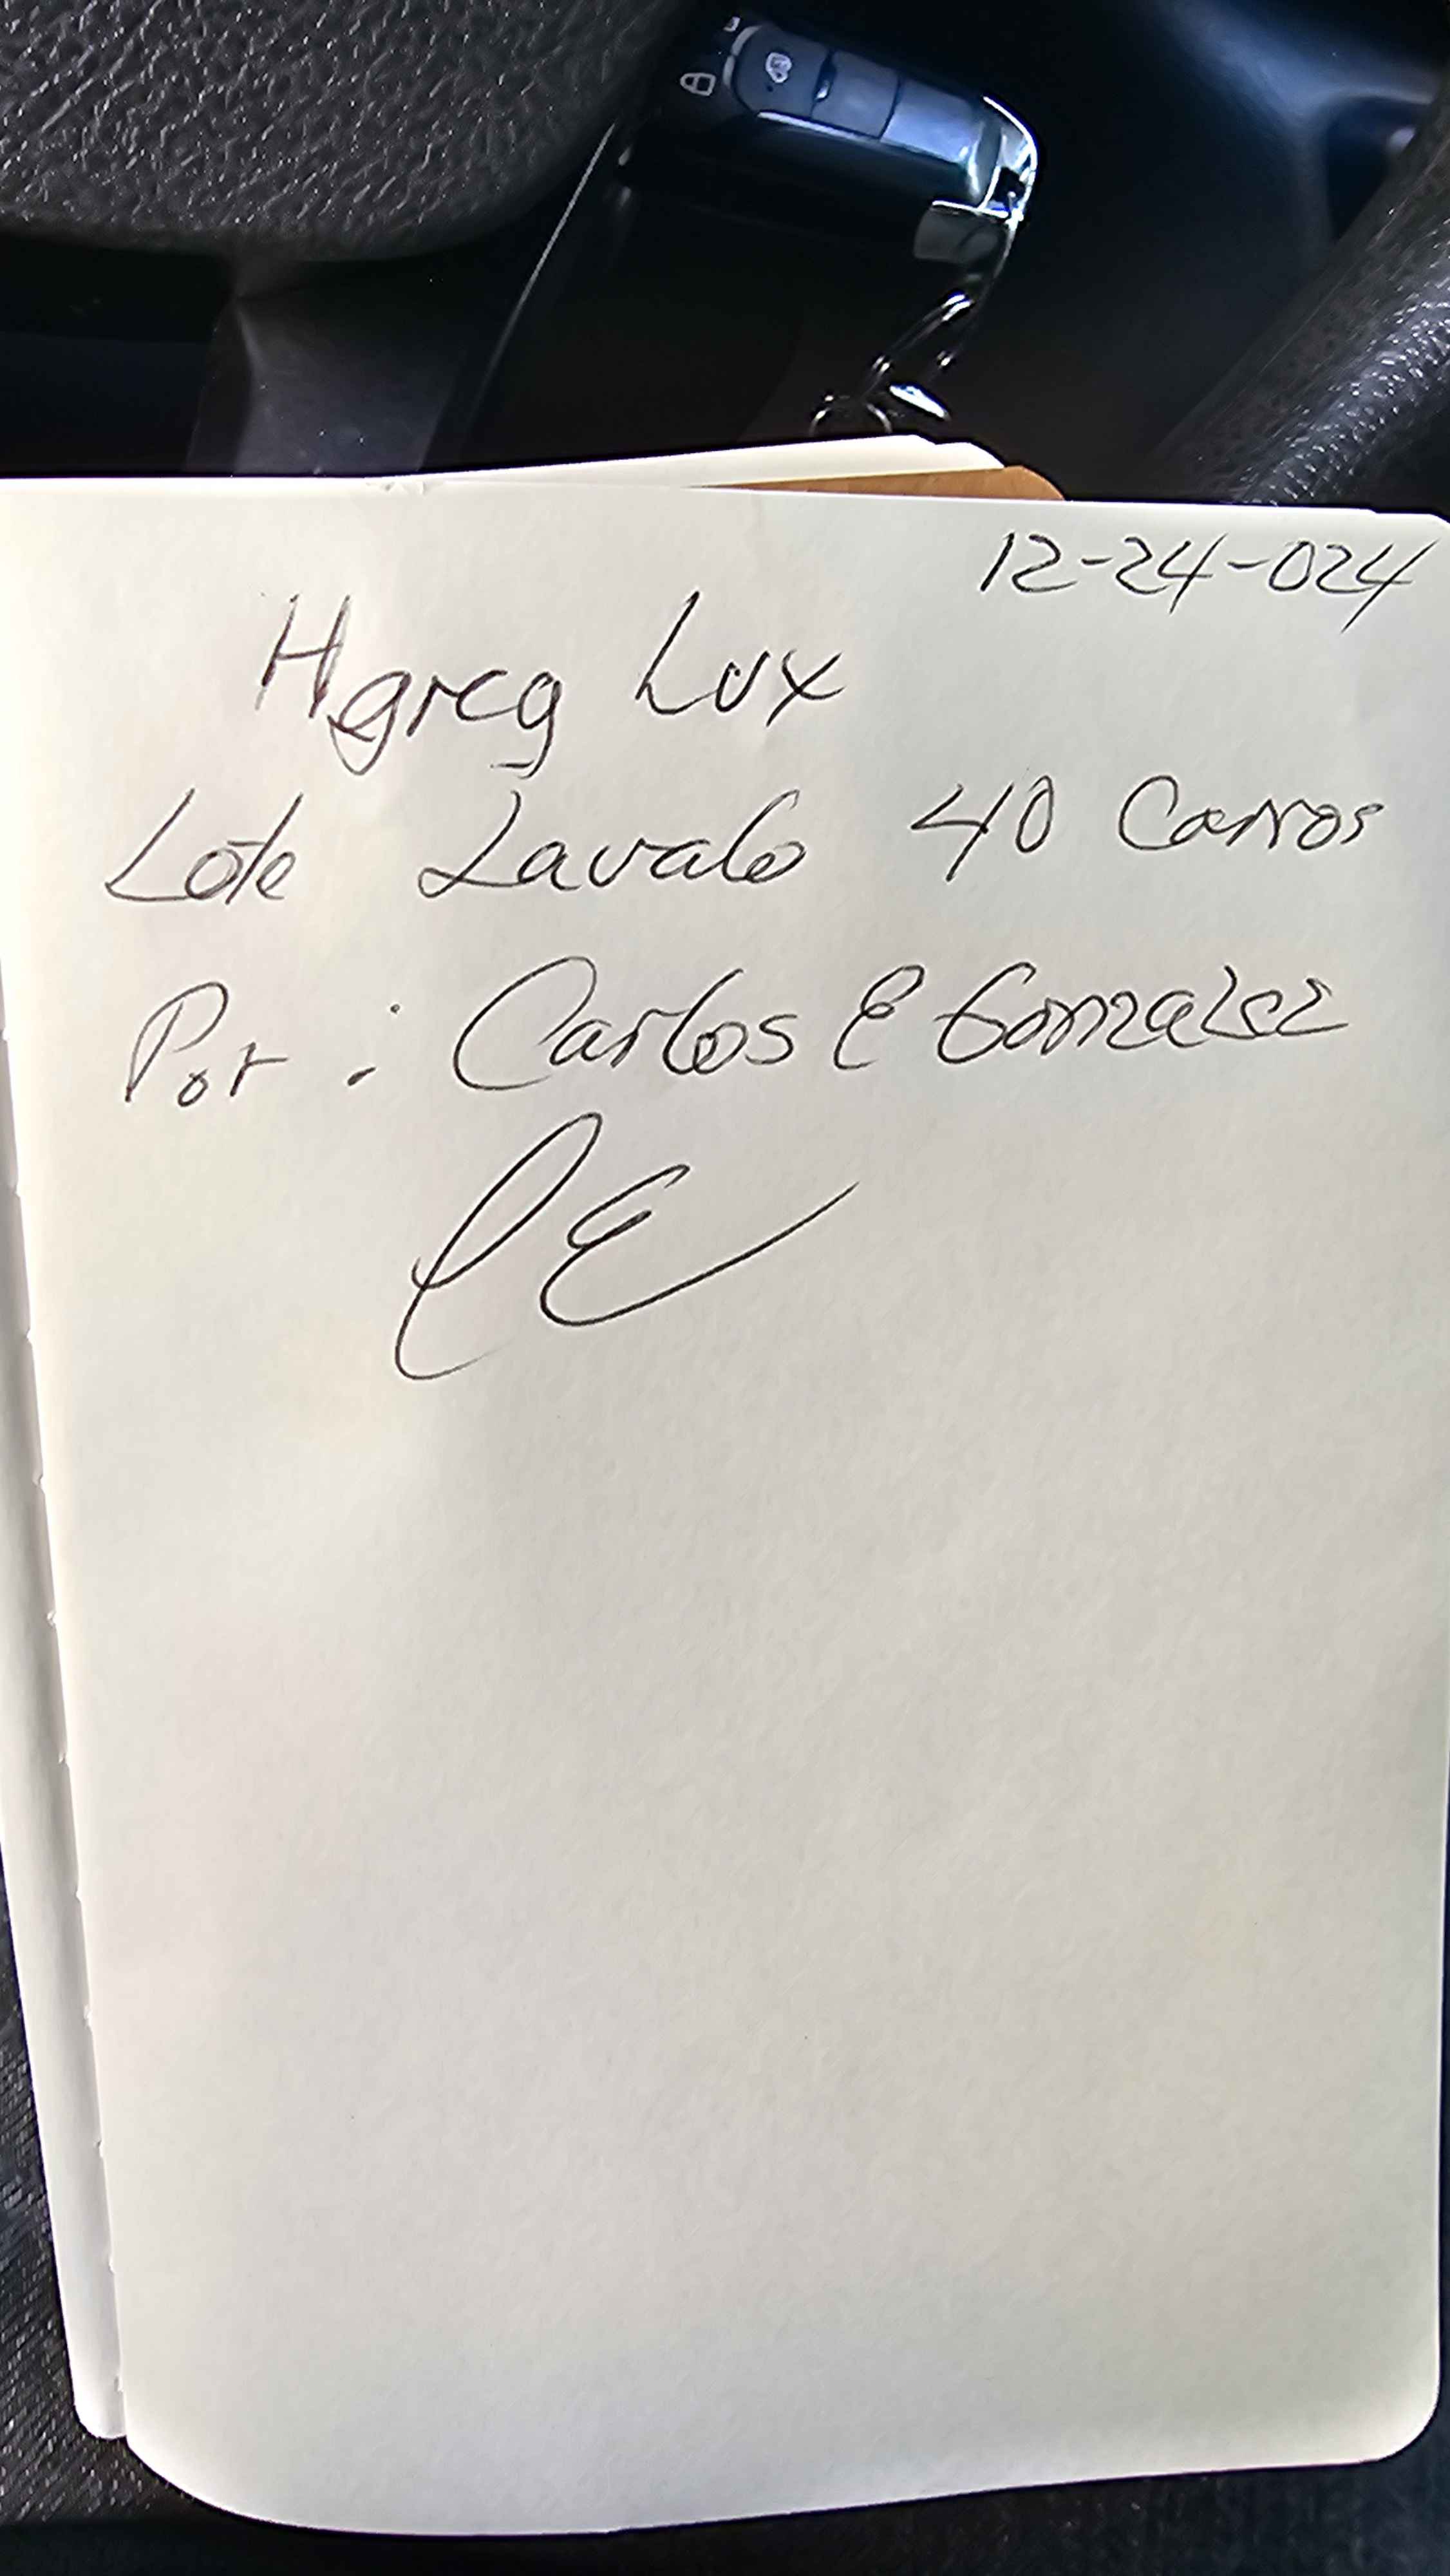 12-24-024
Hgreg Lux
Lote Lavalo 40 Carros
Por : Carlos E Gonzalez
CE